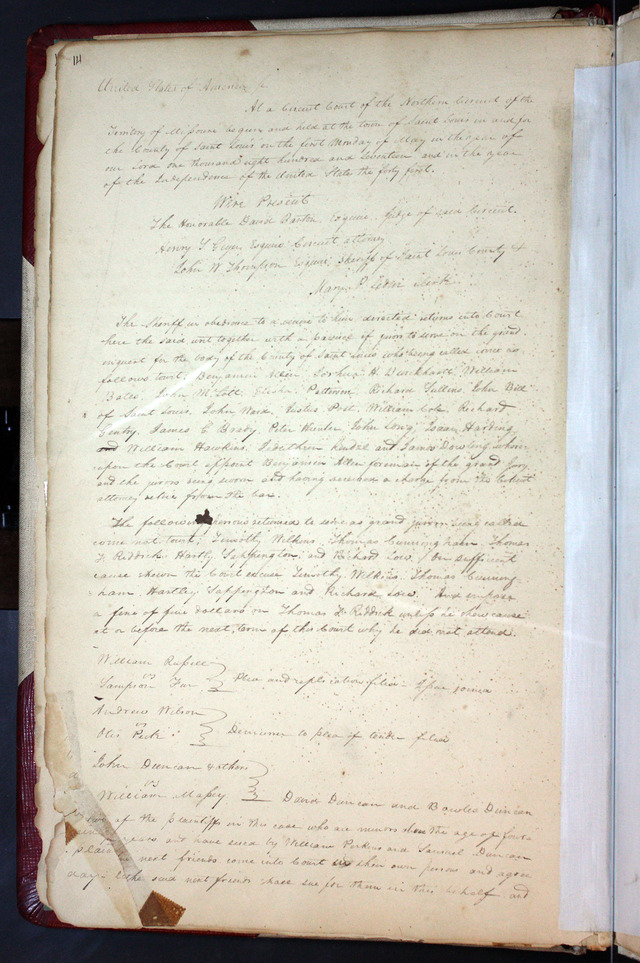 United States of America
At a Circuit Court of the Northern Circuit of the
Territory of Missouri begun and held at the town of Saint Louis in and for
the County of Saint Louis on the first Monday of May in the year of
our Lord one thousand eight hundred and seventeen and in the year
of the Independence of the United States the forty first.
Were Present
The Honorable David Barton Esquire judge of said Circuit.
Henry S Geyer Esquire Circuit attorney
John W Thompson Esquire Sheriff of Saint Louis County &
Mary P. Leduc Clerk
The Sheriff in obedience to a venire to him directed returns into Court
here the said writ together with a of jurors to serve on the grand
inquest for the body of the County of Saint Louis who being called come as
follows towit. Benjamin Allen, Joshua H. Burckhartt William
Bates, John M. Cott, Elisha Patterson, Richard Sullins, John Bell
of Saint Louis, John Ward, Justus Post, William Cole, Richard
Gentry, James C Brady, Peter Hunter, John Long, Isaac Harding
and William Hawkins, and James Dowling whereupon
upon the Court appoint Benjamin Allen foreman of the grand Jury
and the jurors being sworn and having received a charge from the Circuit
attorney retire from the bar.
The following persons returned to serve as grand jurors being called
come not towit, Timothy Wilkins, Thomas Cunningham, Thomas
F. Riddick, Hartly Sappington, and Richard Low. On sufficient
cause shewn the Court excuse Timothy Wilkins, Thomas Cunning-
ham, Hartley Sappington and Richard Low. And impose
a fine of five dollars on Thomas F Riddick unless he shew cause
at or before the next term of this Court why he did not attend.
William Russell
vs
Sampson Plea and replication filed issue joined
Andrew Wilson
vs
Otis Peck Demurrer to plea of tender filed
John Duncan & others
vs
William Massey David Duncan and Bowles Duncan
two of the plaintiffs in this case who are minors above the age of fourteen
years and have sued by William Perkins and Samuel Duncan
next friends come into Court in their own persons and agree
the said next friends shall sue for them in this behalf and